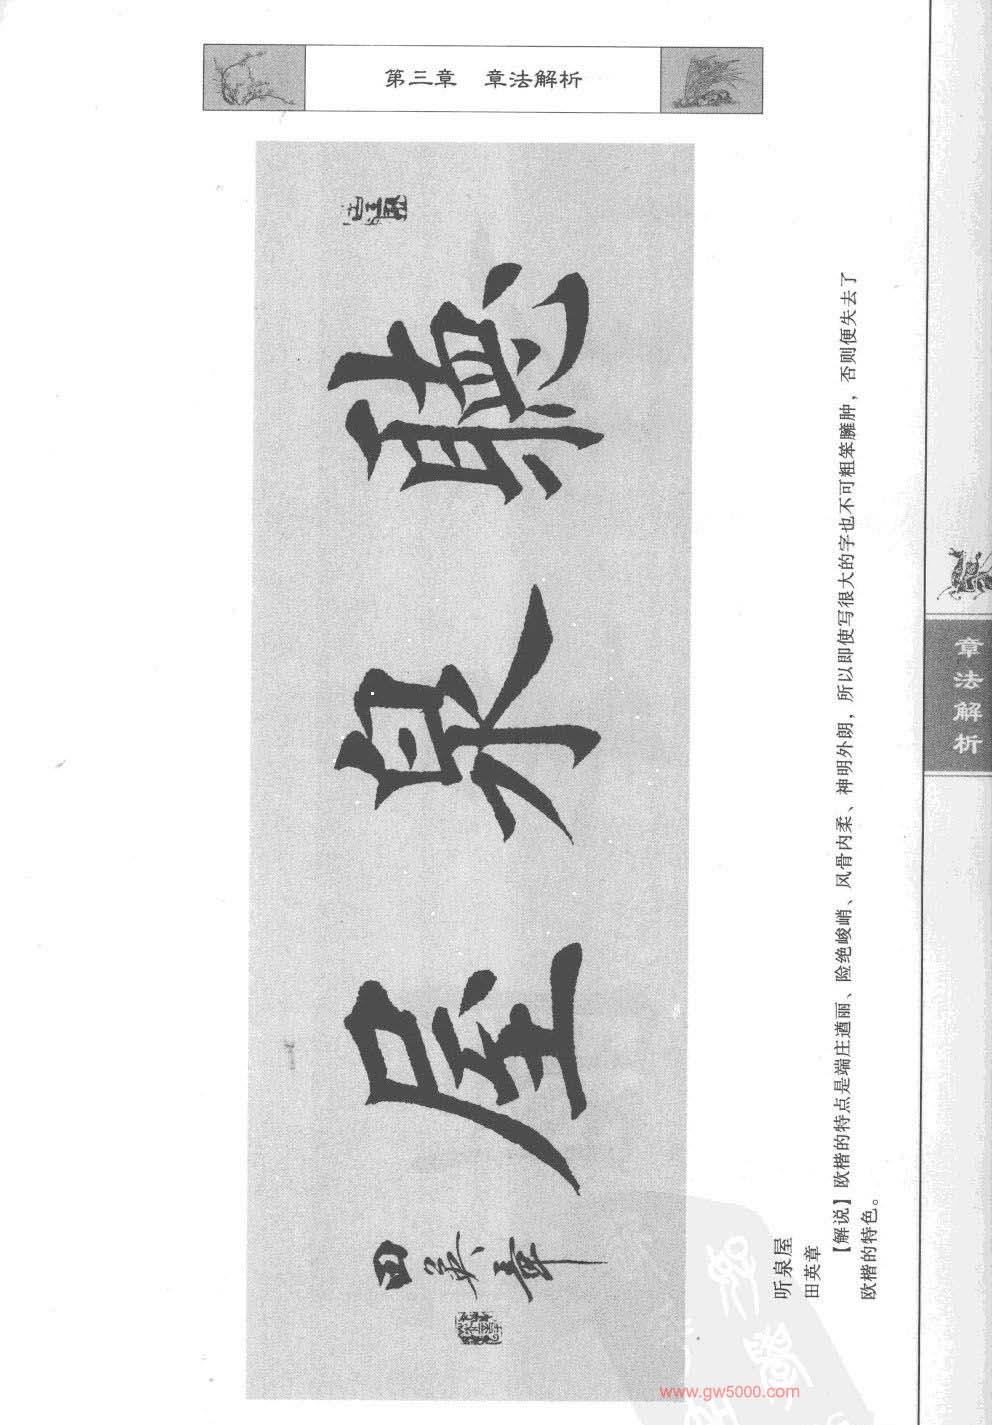 第三章　章法解析
聽泉屋
田英章
听泉屋
田英章
【解说】欧楷的特点是端庄遒丽、险绝峻峭、风骨内柔、神明外朗，所以即使写很大的字也不可粗笨臃肿，否则便失去了
欧楷的特色。
章法解析
www.gw5000.com